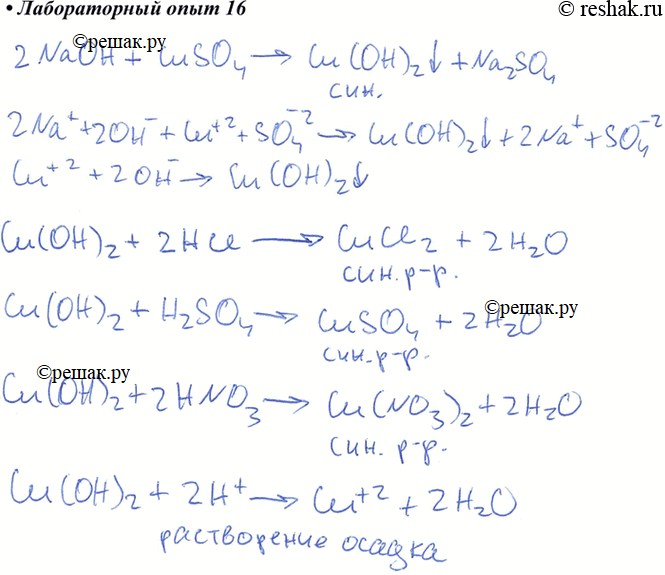 • Лабораторный опыт 16
©reshak.ru
©решак.ру
2NaOH + CuSO₄ → Cu(OH)₂↓ + Na₂SO₄
син.
2Na⁺ + 2OH⁻ + Cu⁺² + SO₄⁻² → Cu(OH)₂↓ + 2Na⁺ + SO₄⁻²
Cu⁺² + 2OH⁻ → Cu(OH)₂↓
Cu(OH)₂ + 2HCl → CuCl₂ + 2H₂O
син. р-р.
Cu(OH)₂ + H₂SO₄ → CuSO₄ + 2H₂O
©решак.ру
син. р-р.
©решак.ру
Cu(OH)₂ + 2HNO₃ → Cu(NO₃)₂ + 2H₂O
син. р-р.
Cu(OH)₂ + 2H⁺ → Cu⁺² + 2H₂O
растворение осадка